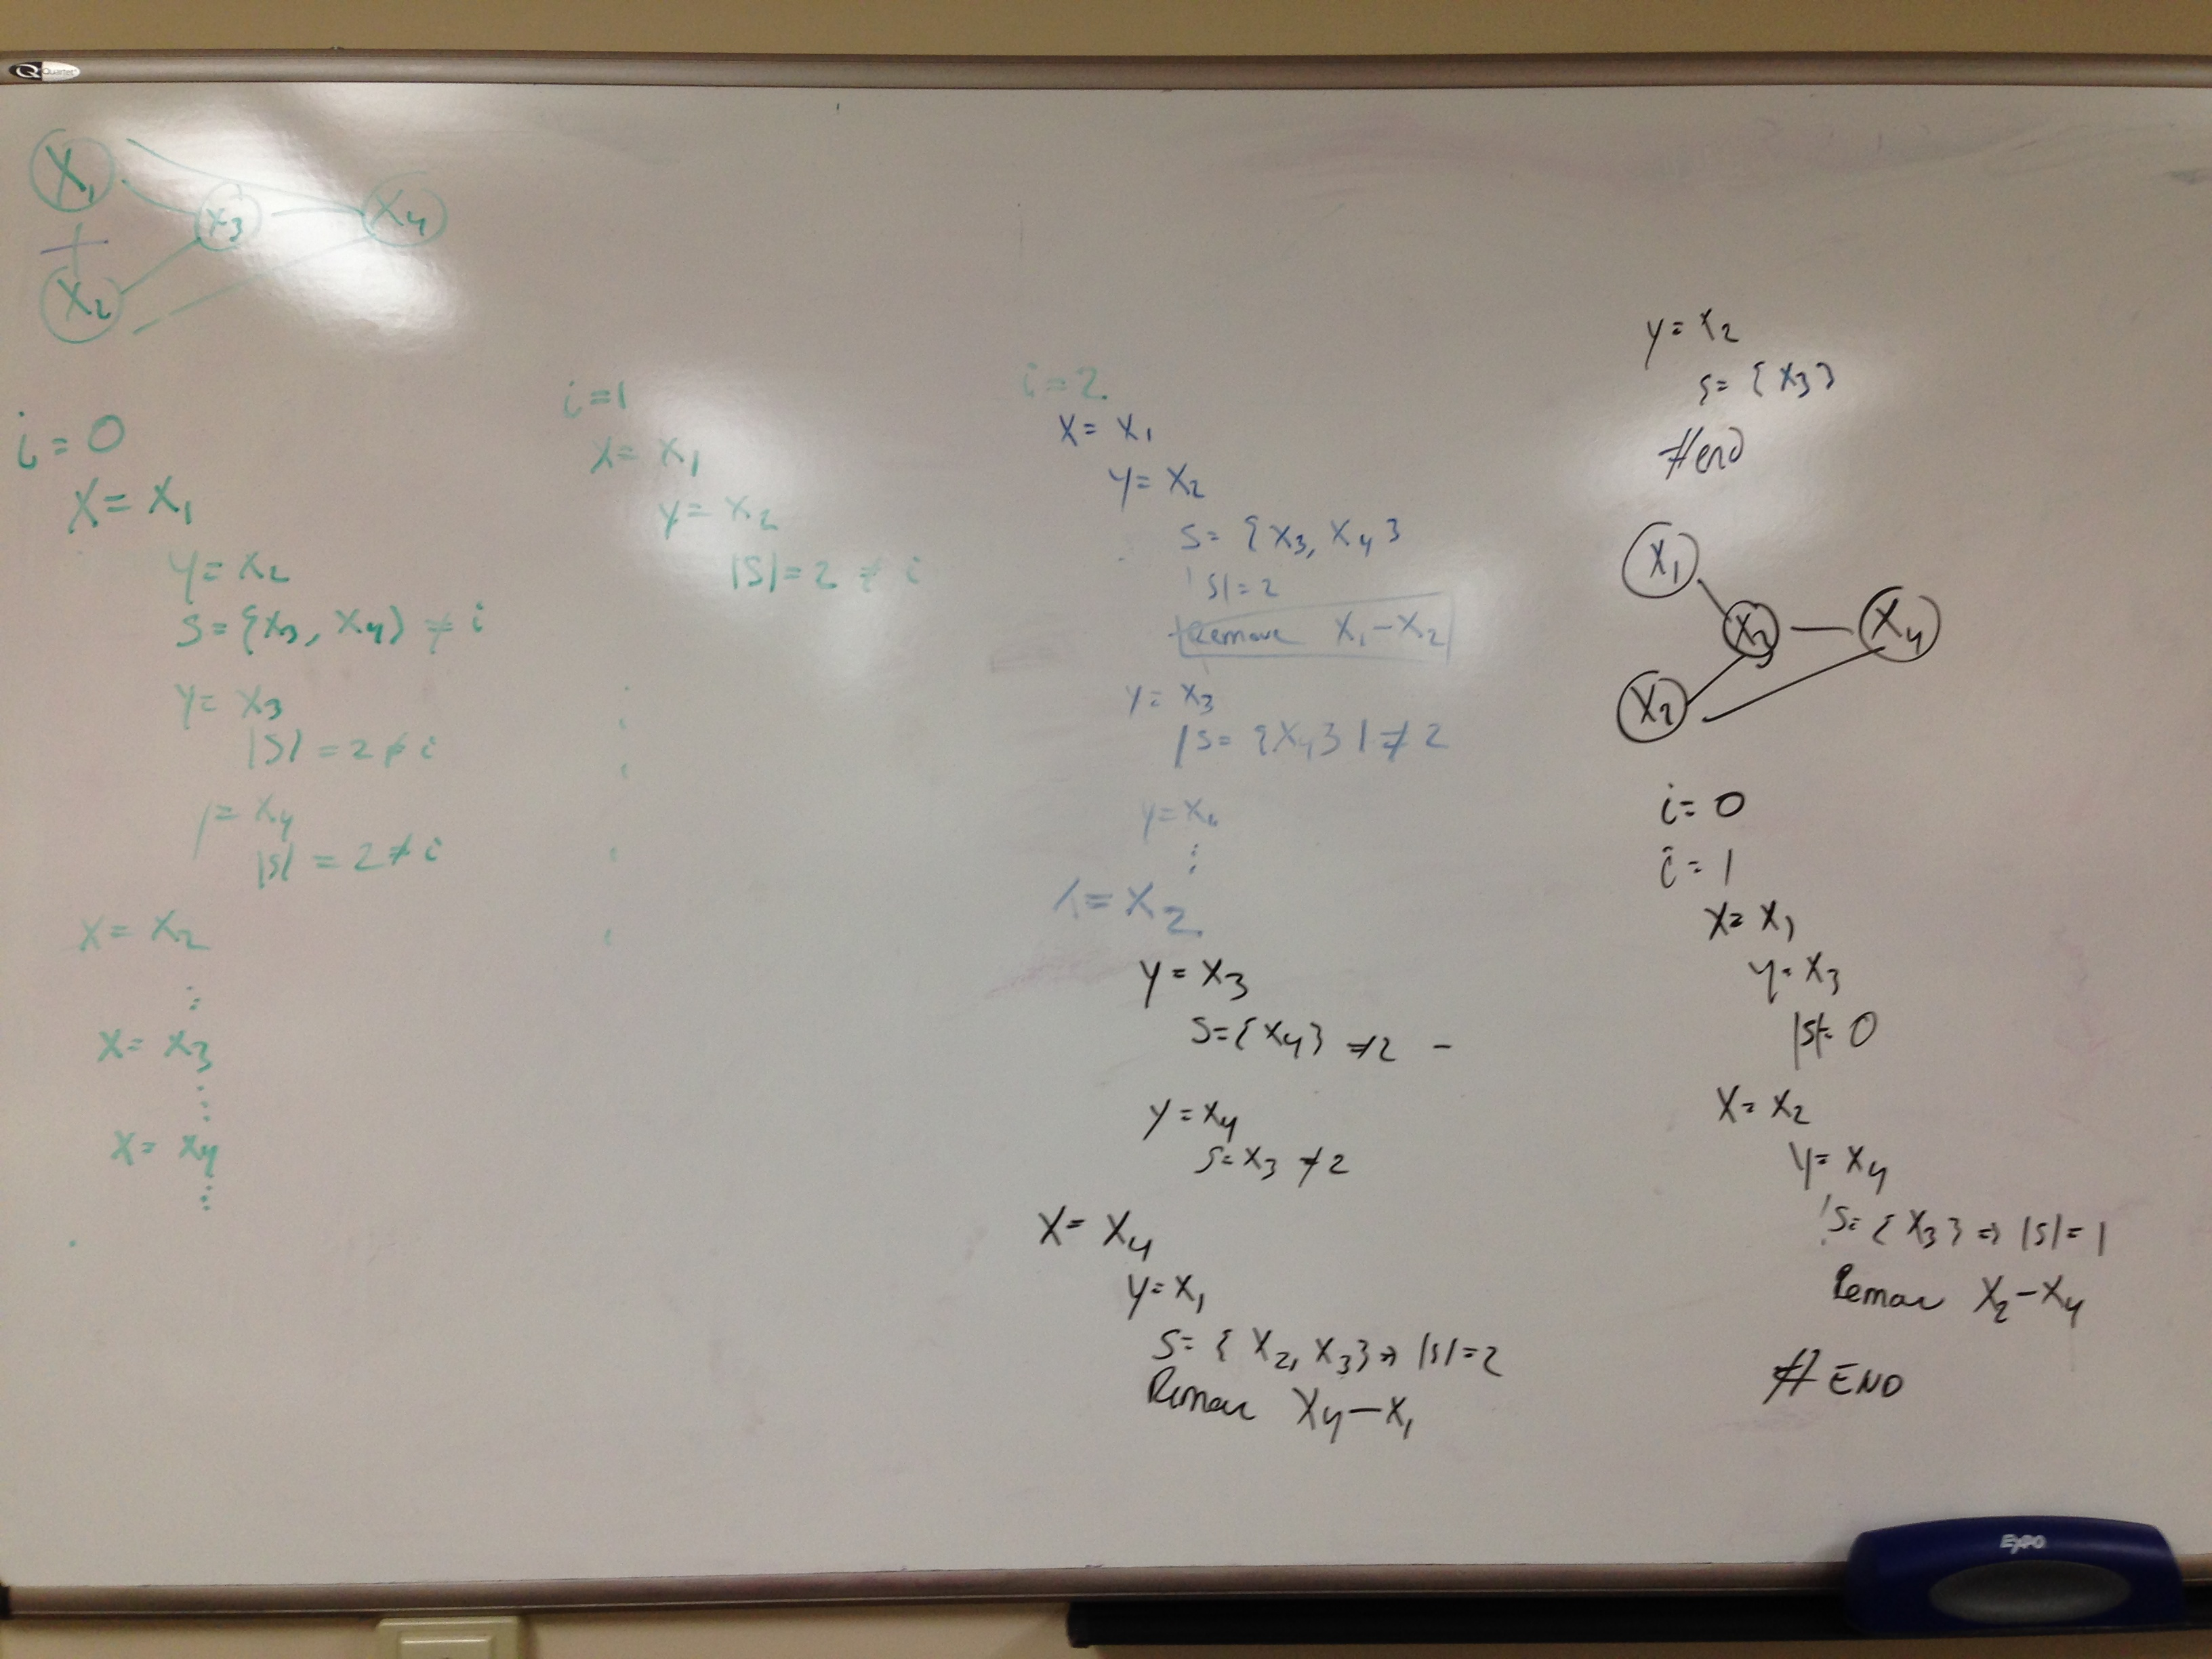 Quartet
X₁
X₃
X₄
X₂
i = 0
X = X₁
Y = X₂
S = {X₃, X₄} ≠ i
Y = X₃
|S| = 2 ≠ i
y = X₄
|S| = 2 ≠ i
X = X₂
⋮
X = X₃
⋮
X = X₄
⋮
i = 1
X = X₁
Y = X₂
|S| = 2 ≠ i
i = 2
X = X₁
Y = X₂
S = {X₃, X₄}
|S| = 2
Remove X₁ - X₂
Y = X₃
|S = {X₄}| ≠ 2
Y = X₄
⋮
X = X₂
Y = X₃
S = {X₄} ≠ 2 -
Y = X₄
S = X₃ ≠ 2
X = X₄
Y = X₁
S = {X₂, X₃} ⇒ |S| = 2
Remove X₄ - X₁
y = X₂
S = {X₃}
#end
X₁
X₃
X₄
X₂
i = 0
i = 1
X = X₁
Y = X₃
|S| = 0
X = X₂
Y = X₄
S = {X₃} ⇒ |S| = 1
Remove X₂ - X₄
# END
EXPO